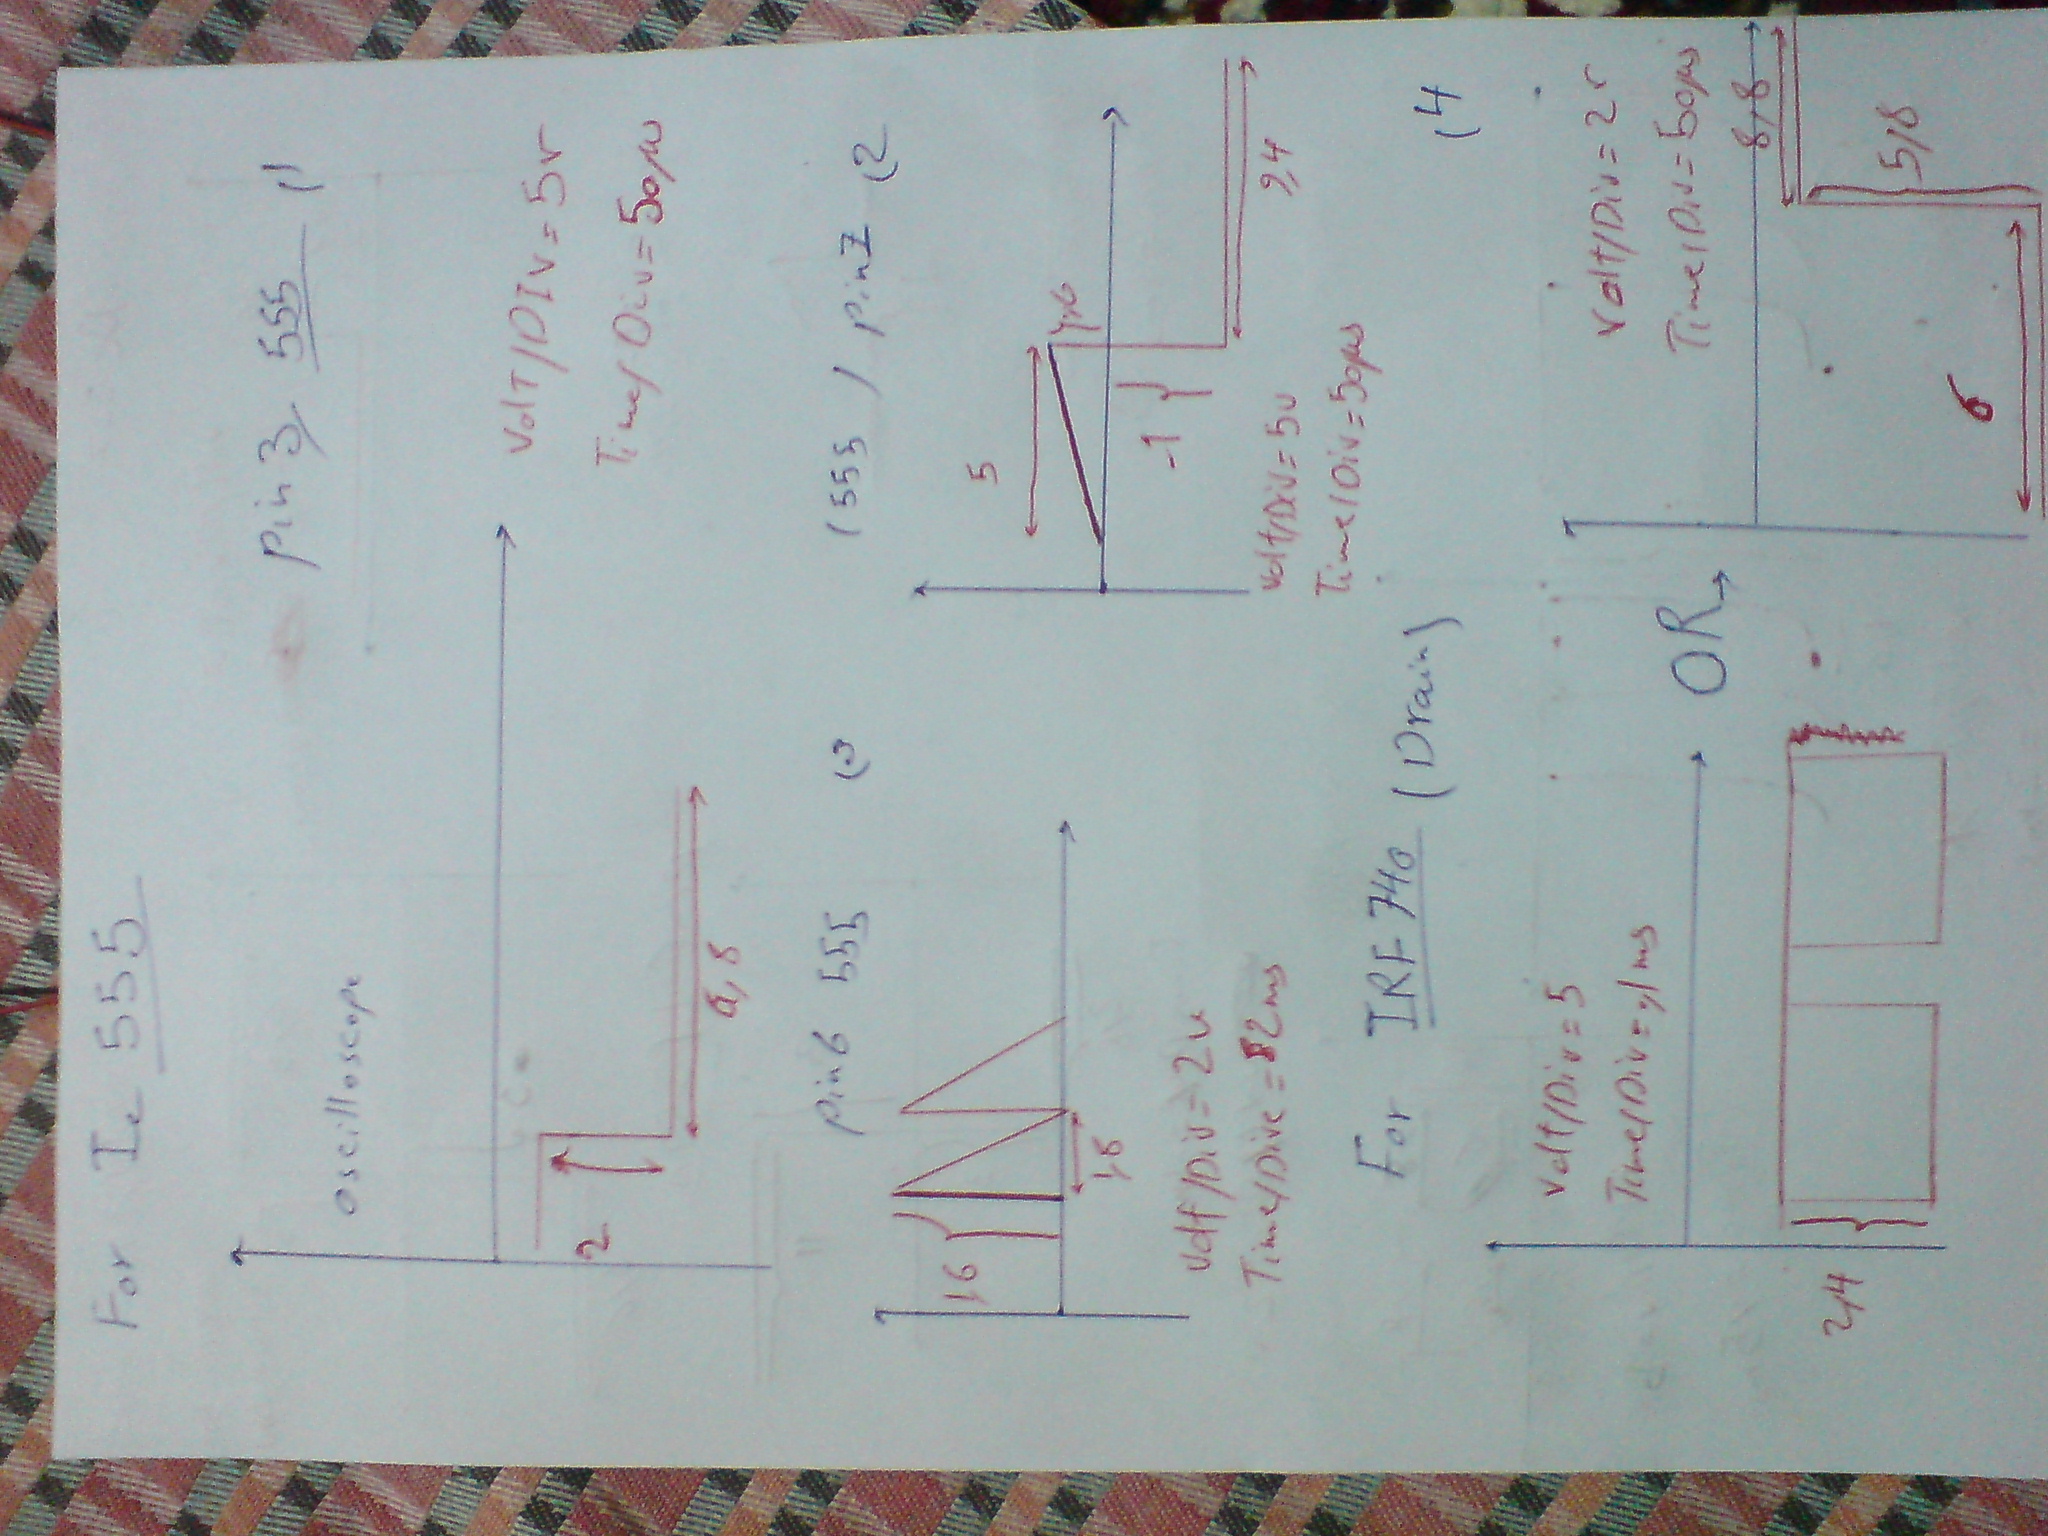 For Ic 555
oscilloscope
pin 3, 555 (1
2
6,8
Volt/DIV = 5v
Time/Div = 50µs
pin6 555 (3
1,6
1,8
Volt/Div = 2v
Time/Dive = 82ms
(555) pin7 (2
5
-1
9,4
Volt/Div = 5v
Time/Div = 50µs
For IRF 740 (Drain) (4
Volt/Div = 5
Time/Div = ,1ms
2,4
OR→
Volt/Div = 2v
Time/Div = 50µs
8,8
5,8
6